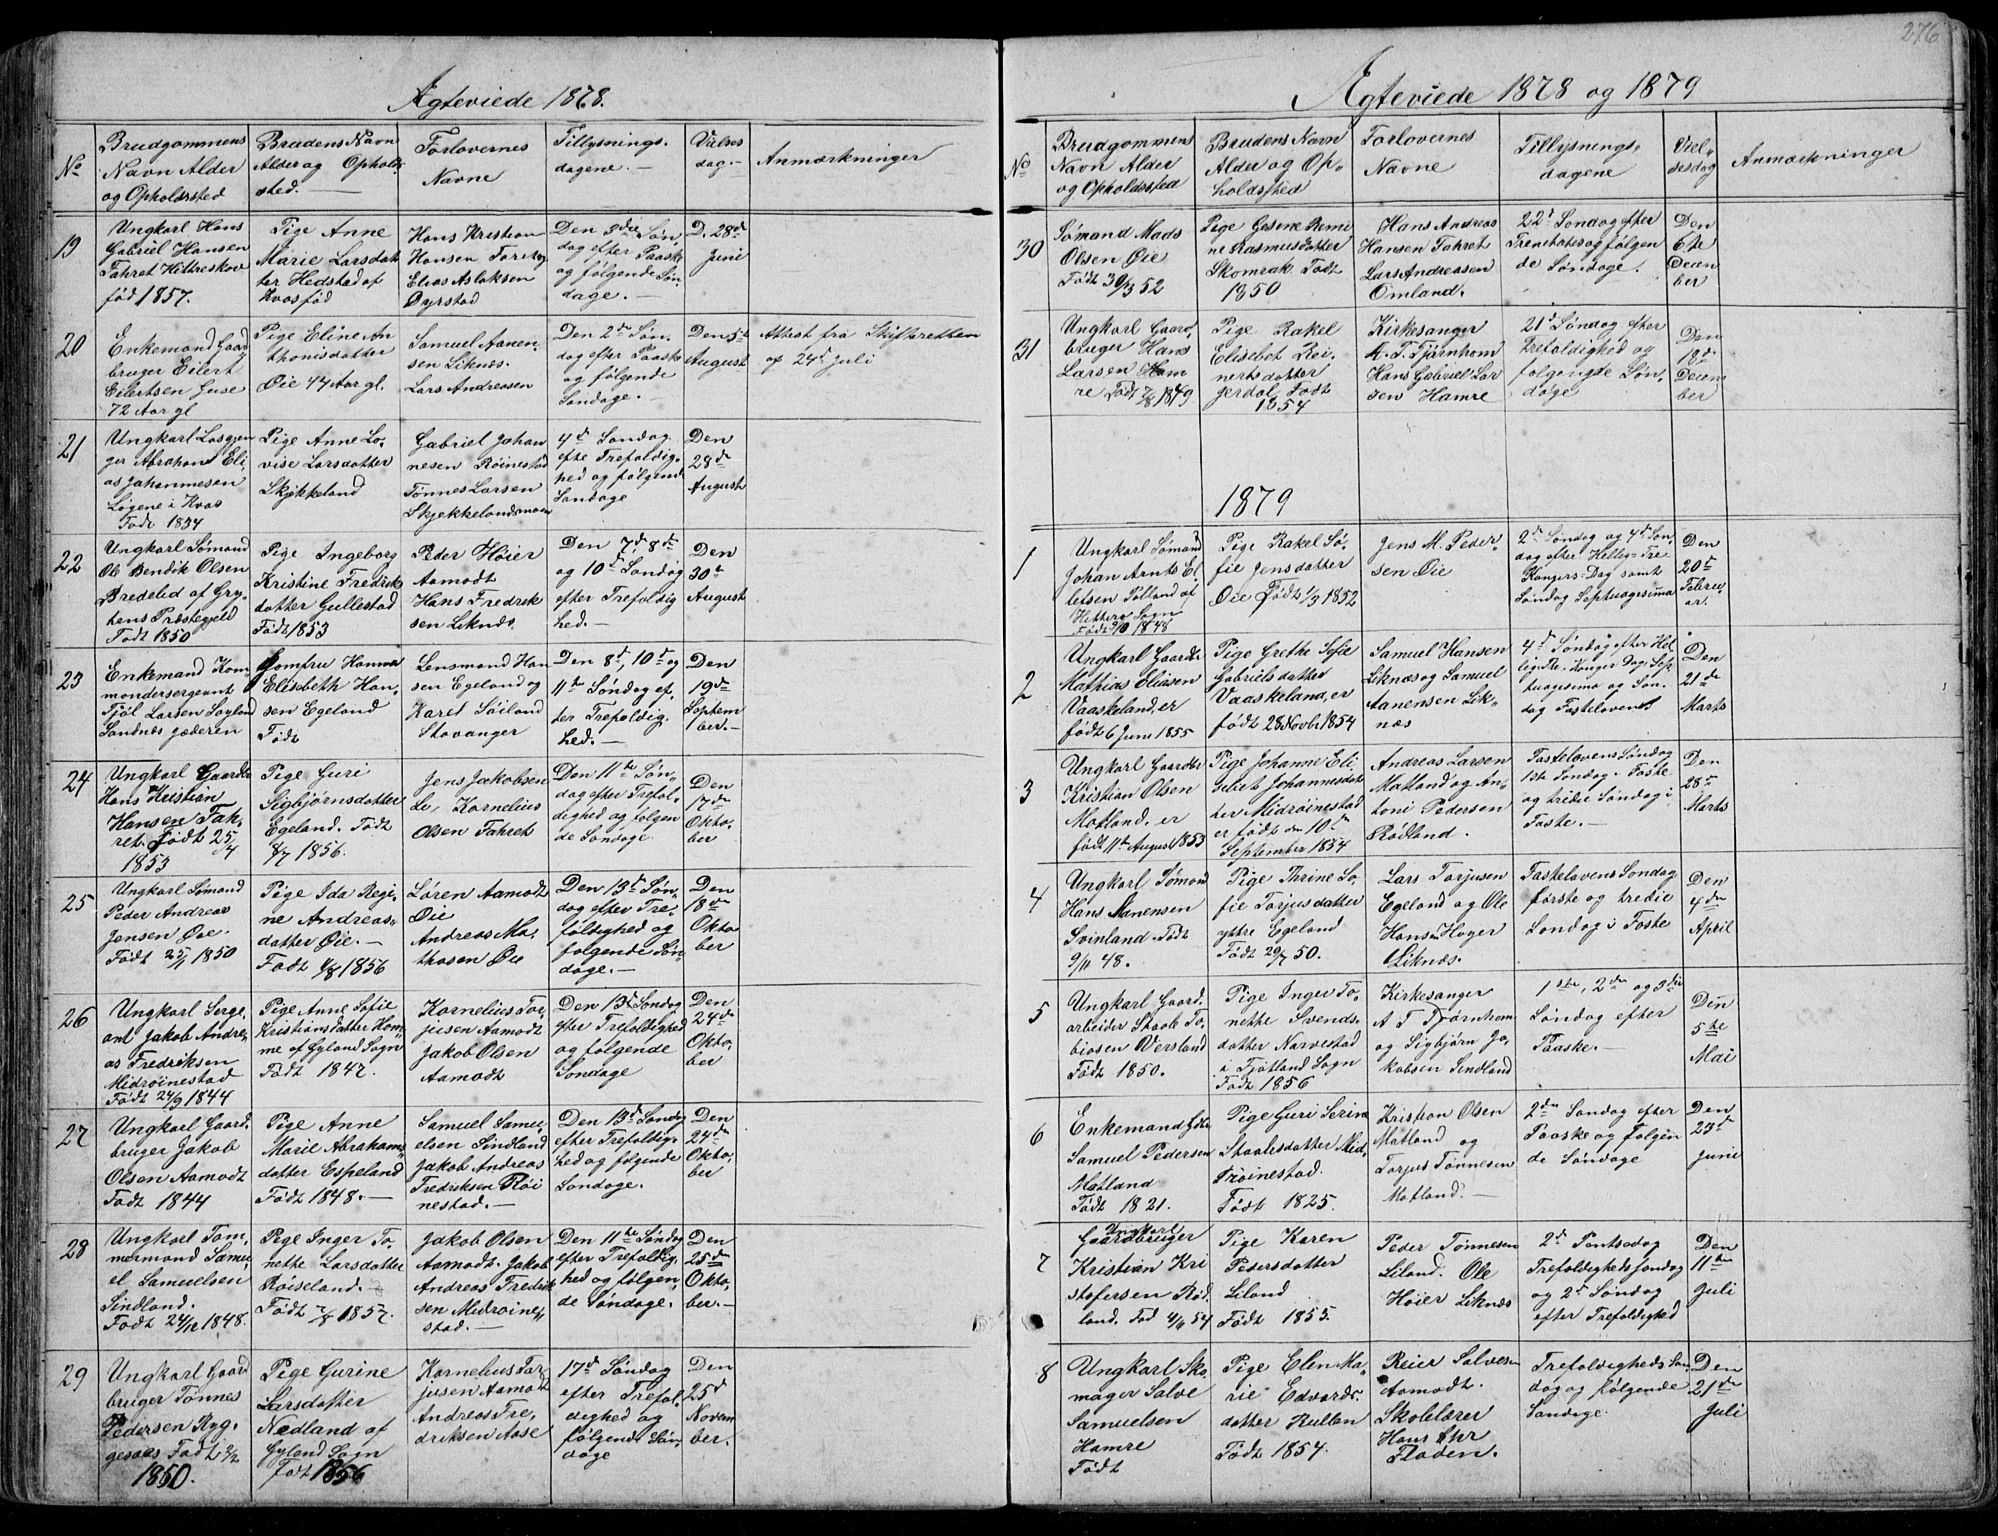 276
Ægteviede 1878.
No
Brudgommens
Navn Alder
og Opholdssted
Brudens Navn
Alder og Opholds
sted.
Forlovernes
Navne
Tillysnings.
dagene. —
Vielses
dag. —
Anmærkninger
19
Ungkarl Hans
Gabriel Hansen
Fahret Hitteskov
fød 1857.
Pige Anne
Marie Larsdat
ter Hedstad af
Kvasfjord
Hans Kristian
Hansen
Elias Aslaksen
Øyrstad
Den 3die Søn,
dag efter Paaske
og følgende Søn
dage. —
D. 28de
Juni
20
Enkemand Gaard
bruger Eilert
Eilertsen Guse
72 Aar gl
Pige Eline An
thonisdatter
Øie 44 Aar gl.
Samuel Aanen,
sen Liknes.
Lars Andreasen
Den 2de Søn,
dag efter Paaske
og følgende
Søndage. —
Den 5te
August
Attest fra Skifteretten
af 24de Juli
21
Ungkarl Losgjen
ger Abraham Eli,
as Johannesen
Løgene i Kvas
Født 1834
Pige Anne Lo,
vise Larsdatter
Skjekkeland
Gabriel Johan
nesen Røinestad
Tønnes Larsen
Skjekkelandsmoen
4de Søndag
efte Trefoldig,
hed og følgende
Søndage
Den
28de
August
22
Ungkarl Sømand
Ole Bendik Olsen
Bredelid af Gry,
tens Præstegjeld
Født 1850
Pige Ingeborg
Kristine Fredriks
datter Gullestad
Født 1853
Peder Høier
Aamodt
Hans Fredrik
sen Liknes.
Den 7de 8de
og 10de Søndag
efter Trefoldig
hed. —
Den
30te
August
23
Enkemand Kom,
mandersergeant
Fjøl Larsen Søyland
Sandnes Jæderen
Jomfru Hanna
Elisabeth Han,
sen Egeland
Født
Lensmand Han
sen Egeland og
Karel Søiland
Stavanger
Den 8de, 10de og
11te Søndag ef,
ter Trefoldig,
hed. —
Den
19de
Septem
ber. —
24
Ungkarl Gaardbr
Hans Kristian
Hansen Fah,
ret. Født 25/4
1853
Pige Guri
Sigbjørnsdatter
Egeland. Født
8/7 1856.
Jens Jakobsen
Kornelius
Olsen Fahret
Den 11te Søn,
dag efter Trefol,
dighed og følgen
de Søndage
Den
17de
Okto,
ber
25
Ungkarl Sømand
Peder Andreas
Jensen Øie.
Født 25/1 1850
Pige Ida Regi,
ne Andreas,
datter Øie. —
Født 1/8 1856
Søren Aamodt
Øie
Andreas Ma,
thæsen Øie
Den 13de Søn,
dag efter Tre,
foldighed og
følgende Søn,
dage. —
Den
18de
Okto
ber
26
Ungkarl Serge,
ant Jakob Andre,
as Fredriksen
Midrøinestad
Født 24/9 1844
Pige Anne Sofie
Kristiansdatter Hom,
me af Gyland Sogn
Født 1847.
Kornelius Tor,
jusen Aamodt
Jakob Olsen
Aamodt
Den 13de Søndag
efter Trefoldighed
og følgende
Søndage
Den
24de
Okto,
ber
27
Ungkarl Gaard,
bruger Jakob
Olsen Aamodt
Født 1844
Pige Anne
Marie Abrahams,
datter Espeland
Født 1848. —
Samuel Samu,
elsen Sindland
Jakob Andreas
Fredriksen Røi
nestad. —
Den 13de Søndag
efter Trefoldig,
hed og følgende
Søndage.
Den
24de
Okto,
ber
28
Ungkarl Tøm,
mermand Samu,
el Samuelsen
Sindland.
Født 24/12 1848.
Pige Inger To,
nette Larsdatter
Røiseland.
Født 7/8 1857.
Jakob Olsen
Aamodt. Jakob
Andreas Fredrik
sen Midrøine,
stad. —
Den 11te Søndag
efter Trefoldig,
hed og følgen,
de Søndage.
Den
25de
Okto,
ber. —
29
Ungkarl Gaard
bruger Tønnes
Pedersen Ryg,
gesaas Født 2/2
1850.
Pige Gurine
Larsdatter
Nædland af
Gyland Sogn
Født 1856
Kornelius Tor,
jusen Aamodt
Andreas Fre,
driksen Aase
17de Søndag
efter Trefol,
dighed og
følgende Søn,
dage
Den
25de
Novem
ber.
Ægteviede 1878 og 1879
No
Brudgommens
Navn Alder
og Opholdssted
Brudens Navn
Alder og Op,
holdsted
Forlovernes
Navne
Tillysnings,
dagene
Viel,
sesdag
Anmærkninger
30
Sømand Mads
Olsen Øie
Født 30/3 52
Pige Gesene Remi
ne Rasmusdatter
Skomrak Født
1850
Hans Andreas
Hansen Fahret
Lars Andreasen
Omland.
22de Søndag efter
Trenitates og følgen
de Søndage.
Den
6te
Decem
ber
31
Ungkarl Gaard,
bruger Hans
Larsen Ham
re Født 7/8 1849
Pige Rakel
Elisebet Rei,
nertsdatter
Gjerdal Født
1854
Kirkesanger
A. T. Tjørnhom
Hans Gabriel Lar
sen Hamre
21de Søndag efter
Trefoldighed og
følgengde Søn,
dage
Den
18de
Decem
ber
1879
1
Ungkarl Sømand
Johan Arnt El,
lefsen Tølland af
Hitterø Sogn
Født 9/10 1848
Pige Rakel So,
fie Jensdatter
Øie Født 1/3 1852
Jens M. Peder,
sen Øie
2de Søndag og 4de Søn,
dag efter Hellig-Tre
Kongers-Dag samt
Søndag Septuagesima
Den
20de
Februar,
ar.
2
Ungkarl Gaardb
Mathias Eliasen
Vaaskeland, er
født 6 Juni 1855
Pige Grethe Sofie
Gabrielsdatter
Vaaskeland, er
født 28 Novbr 1854
Samuel Hansen
Liknæs og Samuel
Aanensen Lik,
næs
4de Søndag efter Hel,
lig-Tre Konger Dag Sep
tuagesima og Søn,
dag Fastelavens
Den
21de
Marts
3
Ungkarl Gaardbr
Kristian Olsen
Matland. er
født 11te August 1853
Pige Johanne Eli
sebet Johannesdat
ter Midrøinestad
er født den 10de
September 1854
Andreas Larsen
Matland og An,
toni Pedersen
Rødland.
Fastelavens Søndag
1ste Søndag i Faste
og tridie Søndag i
Faste. —
Den
28de
Marts
4
Ungkarl Sømand
Hans Aanensen
Svinland. Født
9/11 48.
Pige Thrine So,
fie Torjusdatter
yttre Egeland
Født 29/7 50.
Lars Torjusen
Egeland og Ole
Hansen Høyer
Liknæs.
Fastelavens Søndag
første og tredie
Søndag i Faste
Den
4de
April
5
Ungkarl Gaard,
arbeider Staale To,
biasen Versland
Født 1850.
Pige Inger To,
nette Svends,
datter Narvestad
i Fjotland Sogn
Født 1856
Kirkesanger
A T Tjørnhom
og Sigbjørn Ja,
kobsen Sindland
1ste, 2den og 3die
Søndag efter
Paaske. —
Den
5te
Mai
6
Enkemand Gdbr
Samuel Pedersen
Matland
Født 1821.
Pige Guri Serine
Staalesdatter Mid,
røinestad.
Født 1825.
Kristian Olsen
Matland og
Torjus Tønnesen
Matland. —
2den Søndag efter
Paaske og følgen
de Søndage
Den
23de
Juni
7
Ungkarl
Gaardbruger
Kristian Kri
stofersen Rød,
land. Fød 4/4 54
Pige Karen
Pedersdatter
Liland
Født 1855.
Peder Tønnesen
Liland. Ole
Høier Liknæs
2de Pantsedag
Trefoldigheds Søndag
og 2de Søndag
efter Trefoldighed
Den
11te
Juli
8
Ungkarl Sko,
mager Salve
Samuelsen
Hamre
Født
Pige Elen Ma,
rie Edvards.
datter Kullen
Født 1854.
Reier Salvesen
Aamodt.
Skolelærer
Hans Chr
Floden.
Trefoldigheds Søn,
dag og følgende
Søndage.
Den
21de
Juli